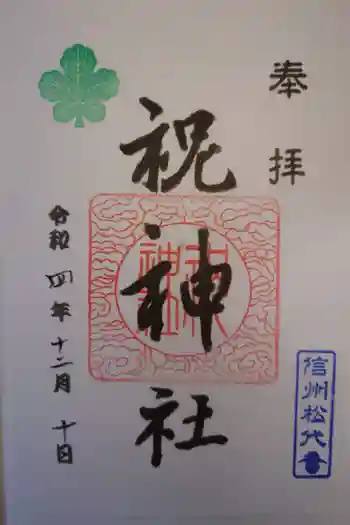 奉拝
祝神社
令和四年十二月十日
信州松代